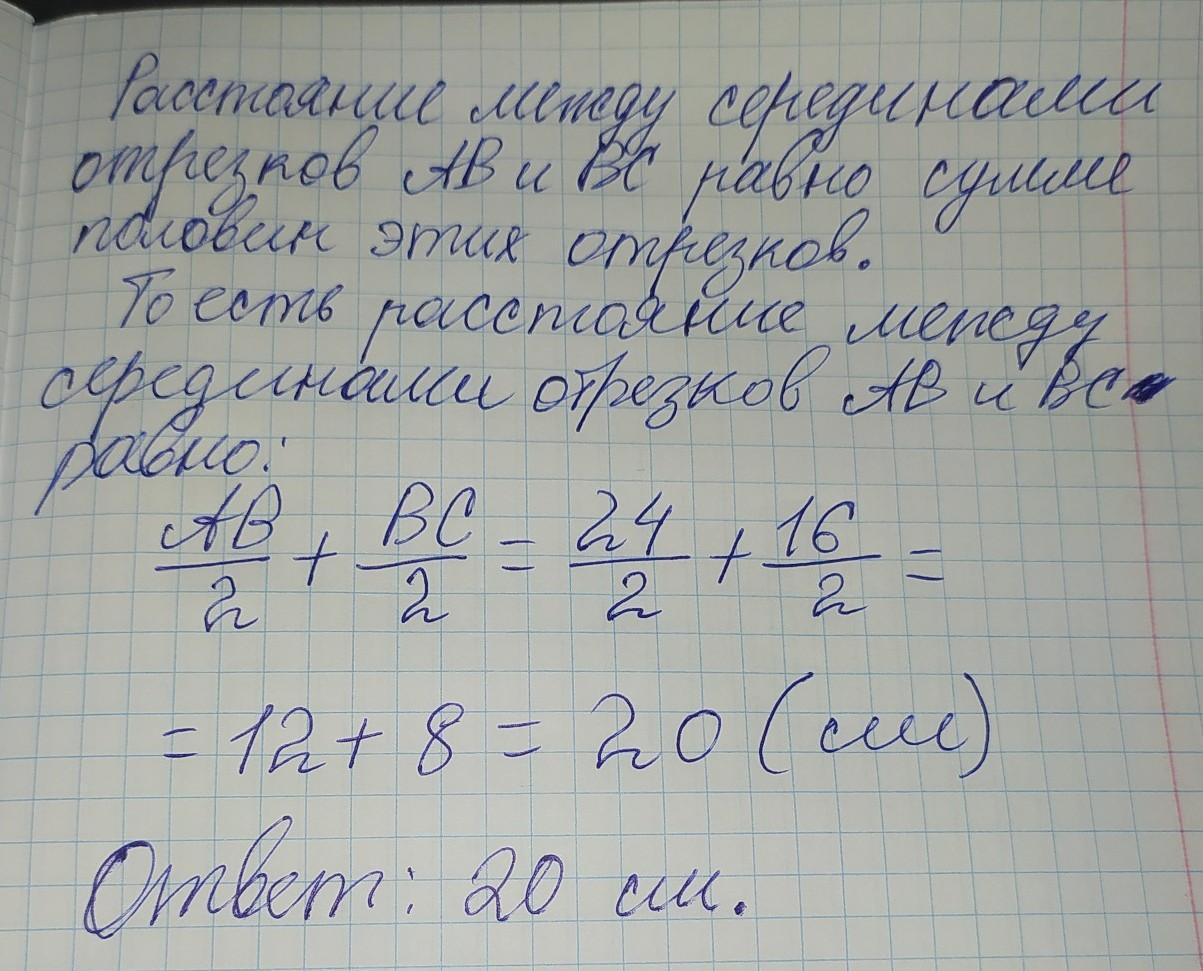 Расстояние между серединами
отрезков АВ и ВС равно сумме
половин этих отрезков.
То есть расстояние между
серединами отрезков АВ и ВС
равно:
АВ/2 + ВС/2 = 24/2 + 16/2 =
= 12 + 8 = 20 (см)
Ответ: 20 см.